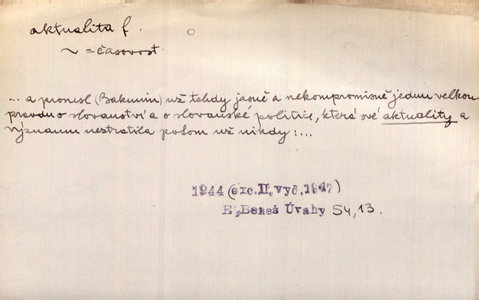 aktualita f.
~ = časovost
... a pronesl (Bakunin) už tehdy jasně a nekompromisně jednu velkou
pravdu o slovanství a o slovanské politice, která své aktuality a
významu neztratila potom už nikdy: ...
1944 (exc. II. vyd. 1947)
E. Beneš Úvahy 54, 13.